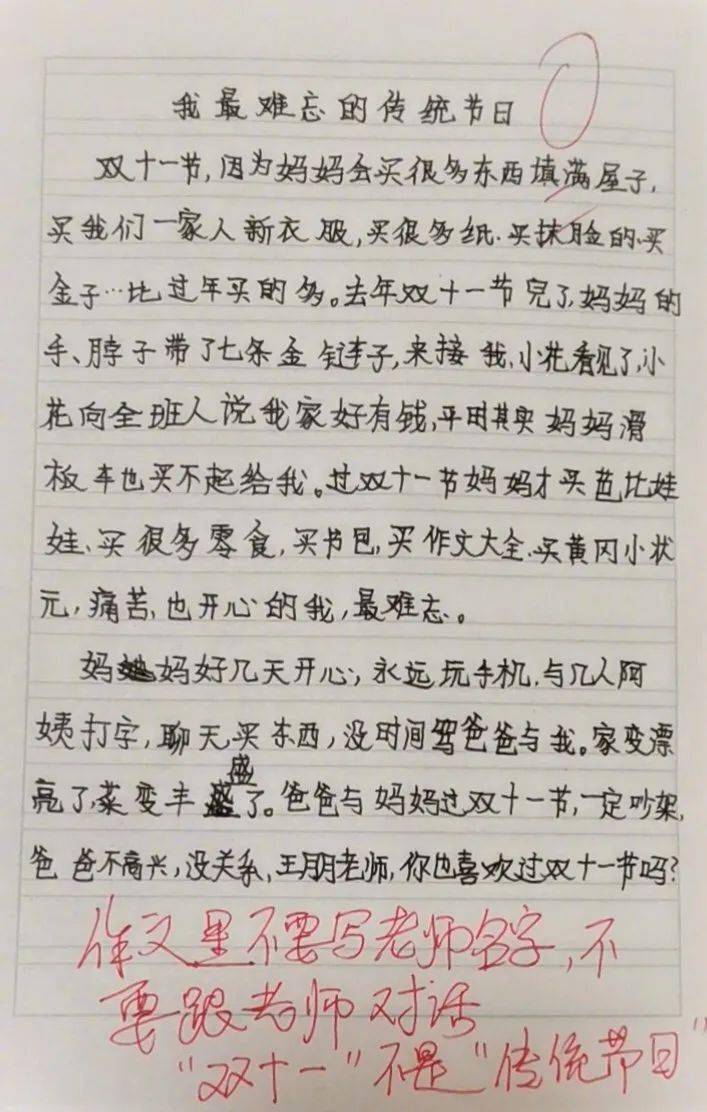 我最难忘的传统节日
双十一节,因为妈妈会买很多东西填满屋子,
买我们一家人新衣服,买很多纸.买抹脸的.买
金子…比过年买的多。去年双十一节完了,妈妈的
手、脖子带了七条金链子,来接我,小花看见了,小
花向全班人说我家好有钱,平时其实妈妈滑
板车也买不起给我。过双十一节妈妈才买芭比娃
娃、买很多零食,买书包,买作文大全.买黄冈小状
元,痛苦,也开心的我,最难忘。
妈妈好几天开心,永远玩手机,与几人阿
姨打字,聊天,买东西,没时间骂爸爸与我。家变漂
亮了,菜变丰盛了。爸爸与妈妈过双十一节,一定吵架,
爸爸不高兴,没关系,王朋老师,你也喜欢过双十一节吗?
作文里不要写老师名字,不
要跟老师对话
"双十一"不是"传统节日"